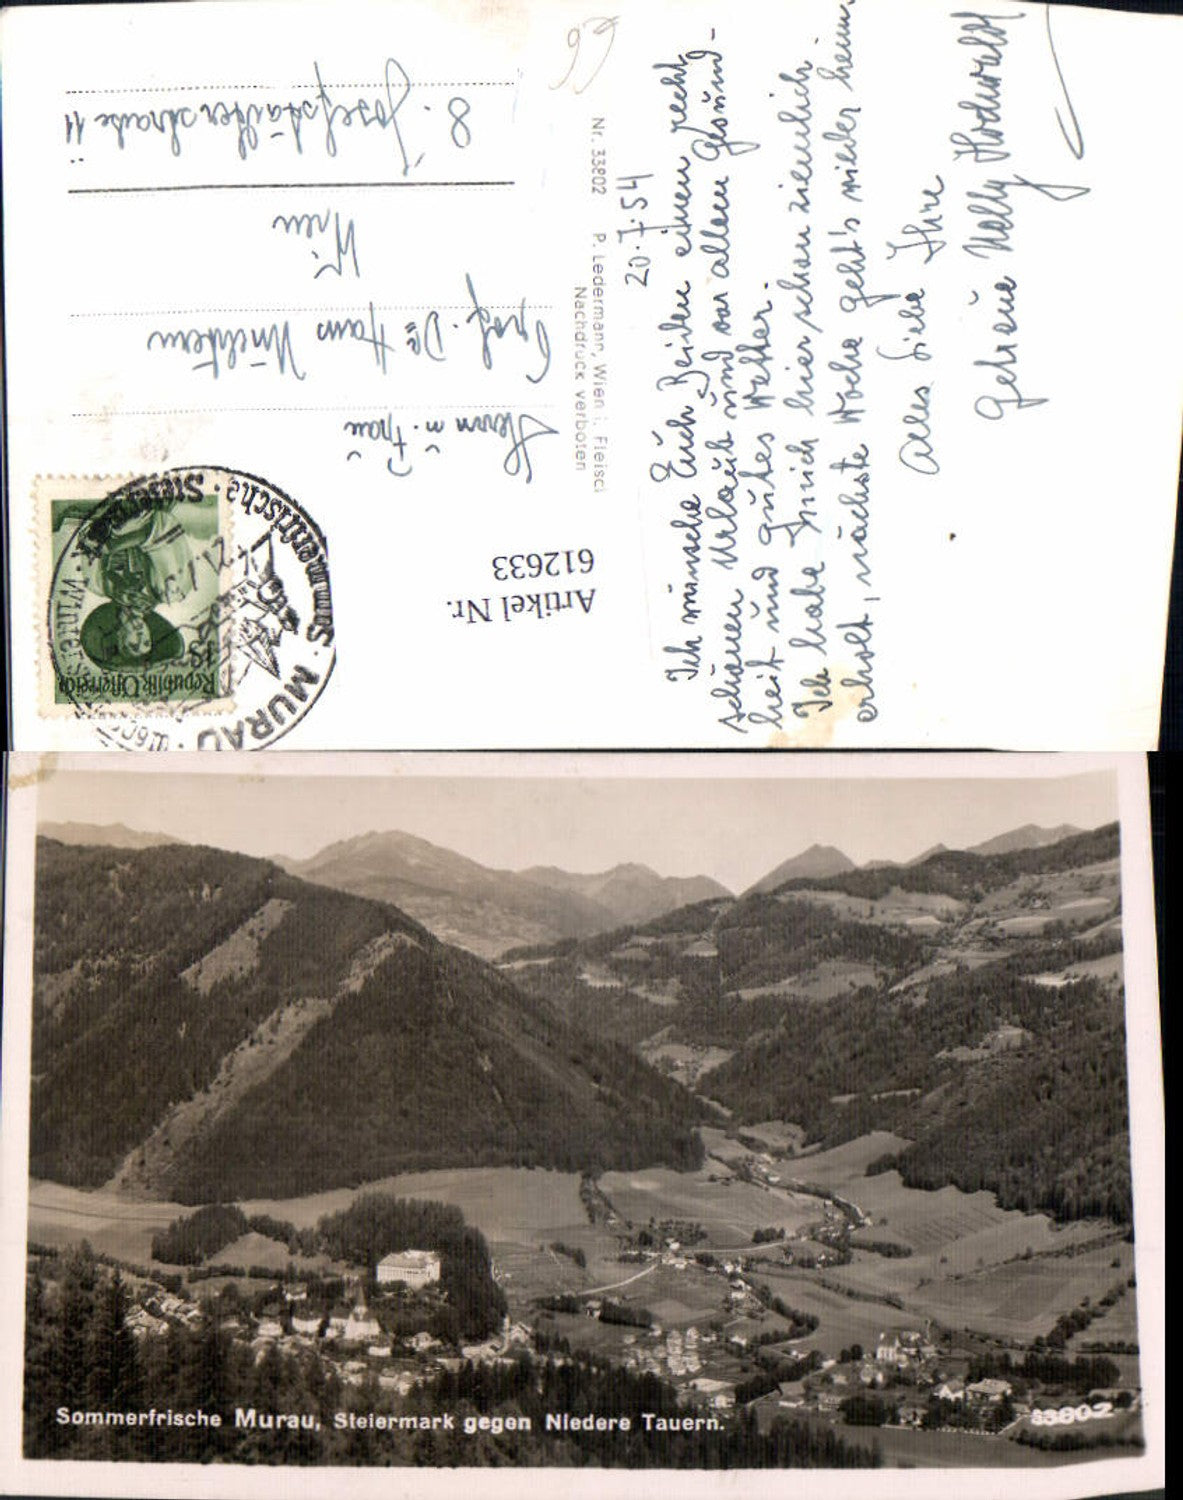 20.7.54
Ich wünsche Euch Beiden einen recht
schönen Urlaub und vor allem Gesund-
heit und gutes Wetter.
Ich habe mich hier schon ziemlich
erholt, nächste Woche geht's wieder heim.
Alles Liebe Ihre
getreue Nelly
Nr. 33802 P. Ledermann, Wien I., Fleisc
Nachdruck verboten
Herrn u. Frau
Prof. Dr Hans
Wien
8. Josefstädterstraße 11
Artikel Nr.
612633
Republik Österreich
1S
MURAU
Sommerfrische · Steiermark · Winters
21.7.54
Sommerfrische Murau, Steiermark gegen Niedere Tauern.
33802